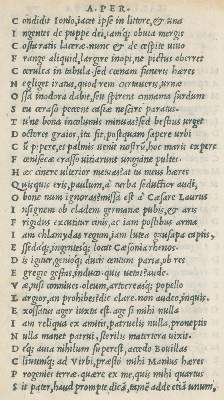 A. PER.
C ondidit tonso, iacet ipse in littore, & una
I ngentes de puppe dei, iamq; obuia mergis
C osta ratis laceræ. nunc & de cæspite uiuo
F range aliquid, largire inopi, ne pictus oberret
C œrulea in tabula. sed cœnam funeris hæres
N egliget iratus, quod rem curtaueris, urnæ
O ssa inodora dabit, seu spirent cinnama surdum
S eu ceraso peccent casiæ nescire paratus.
T u ne bona incolumis minuas? sed bestius urget
D octores graios, ita fit, postquam sapere urbi
C um pipere, et palmis uenit nostrũ, hoc maris expers
F œnisecæ crasso uitiarunt unguine pultes.
H æc cinere ulterior metuas? at tu meus hæres
Q uisquis eris, paulum, a turba seductior audi,
O bone num ignoras? missa est a Cæsare laurus
I nsignem ob cladem germanæ pubis, & aris
F rigidus excutitur cinis, ac iam postibus arma
I am chlamydas regum, iam lutea gausapa captis,
E ssedaq;, ingentesq; locat Cæsonia rhenos.
D is igitur, genioq; ducis centum paria, ob res
E gregie gestas, induco. quis uetat? aude.
V æ, nisi connives oleum, artocreasq; popello
L argior, an prohibes? dic clare. non audeo, inquis.
E xossatus ager iuxta est. age si mihi nulla
I am reliqua ex amitis, patruelis nulla, proneptis
N ulla manet patrui, sterilis matertera uixit.
D eq; auia nihilum superest, accedo Bouillas
C liuumq; ad Virbi, præsto mihi Manius hæres
P rogenies terræ. quære ex me, quis mihi quartus
S it pater, haud prompte dicã, tamẽ adde etiã unum,